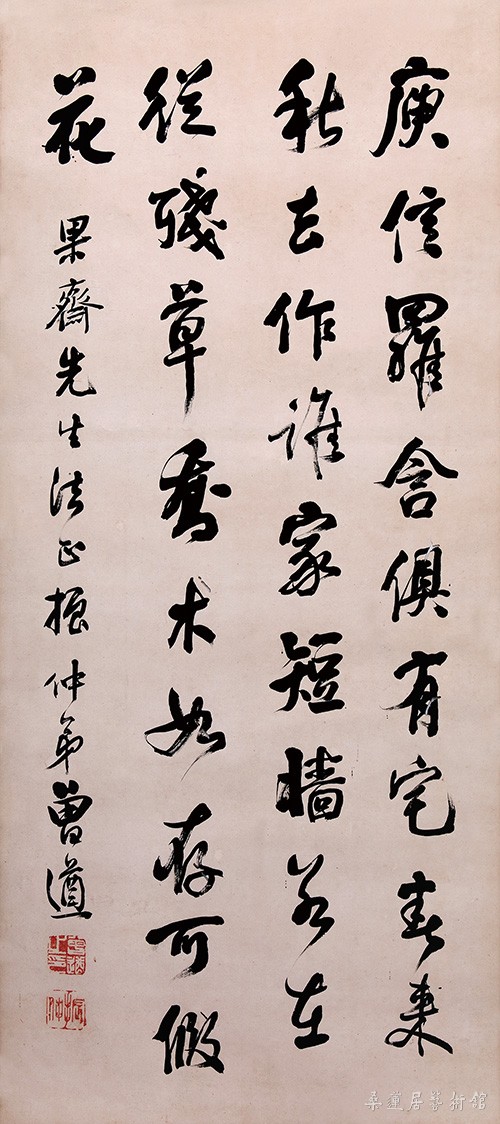 庾信羅含俱有宅春來
秋去作誰家短牆若在
從殘草喬木如存可假
花
果齋先生法正振仲弟曾遒
桑蓮居藝術館